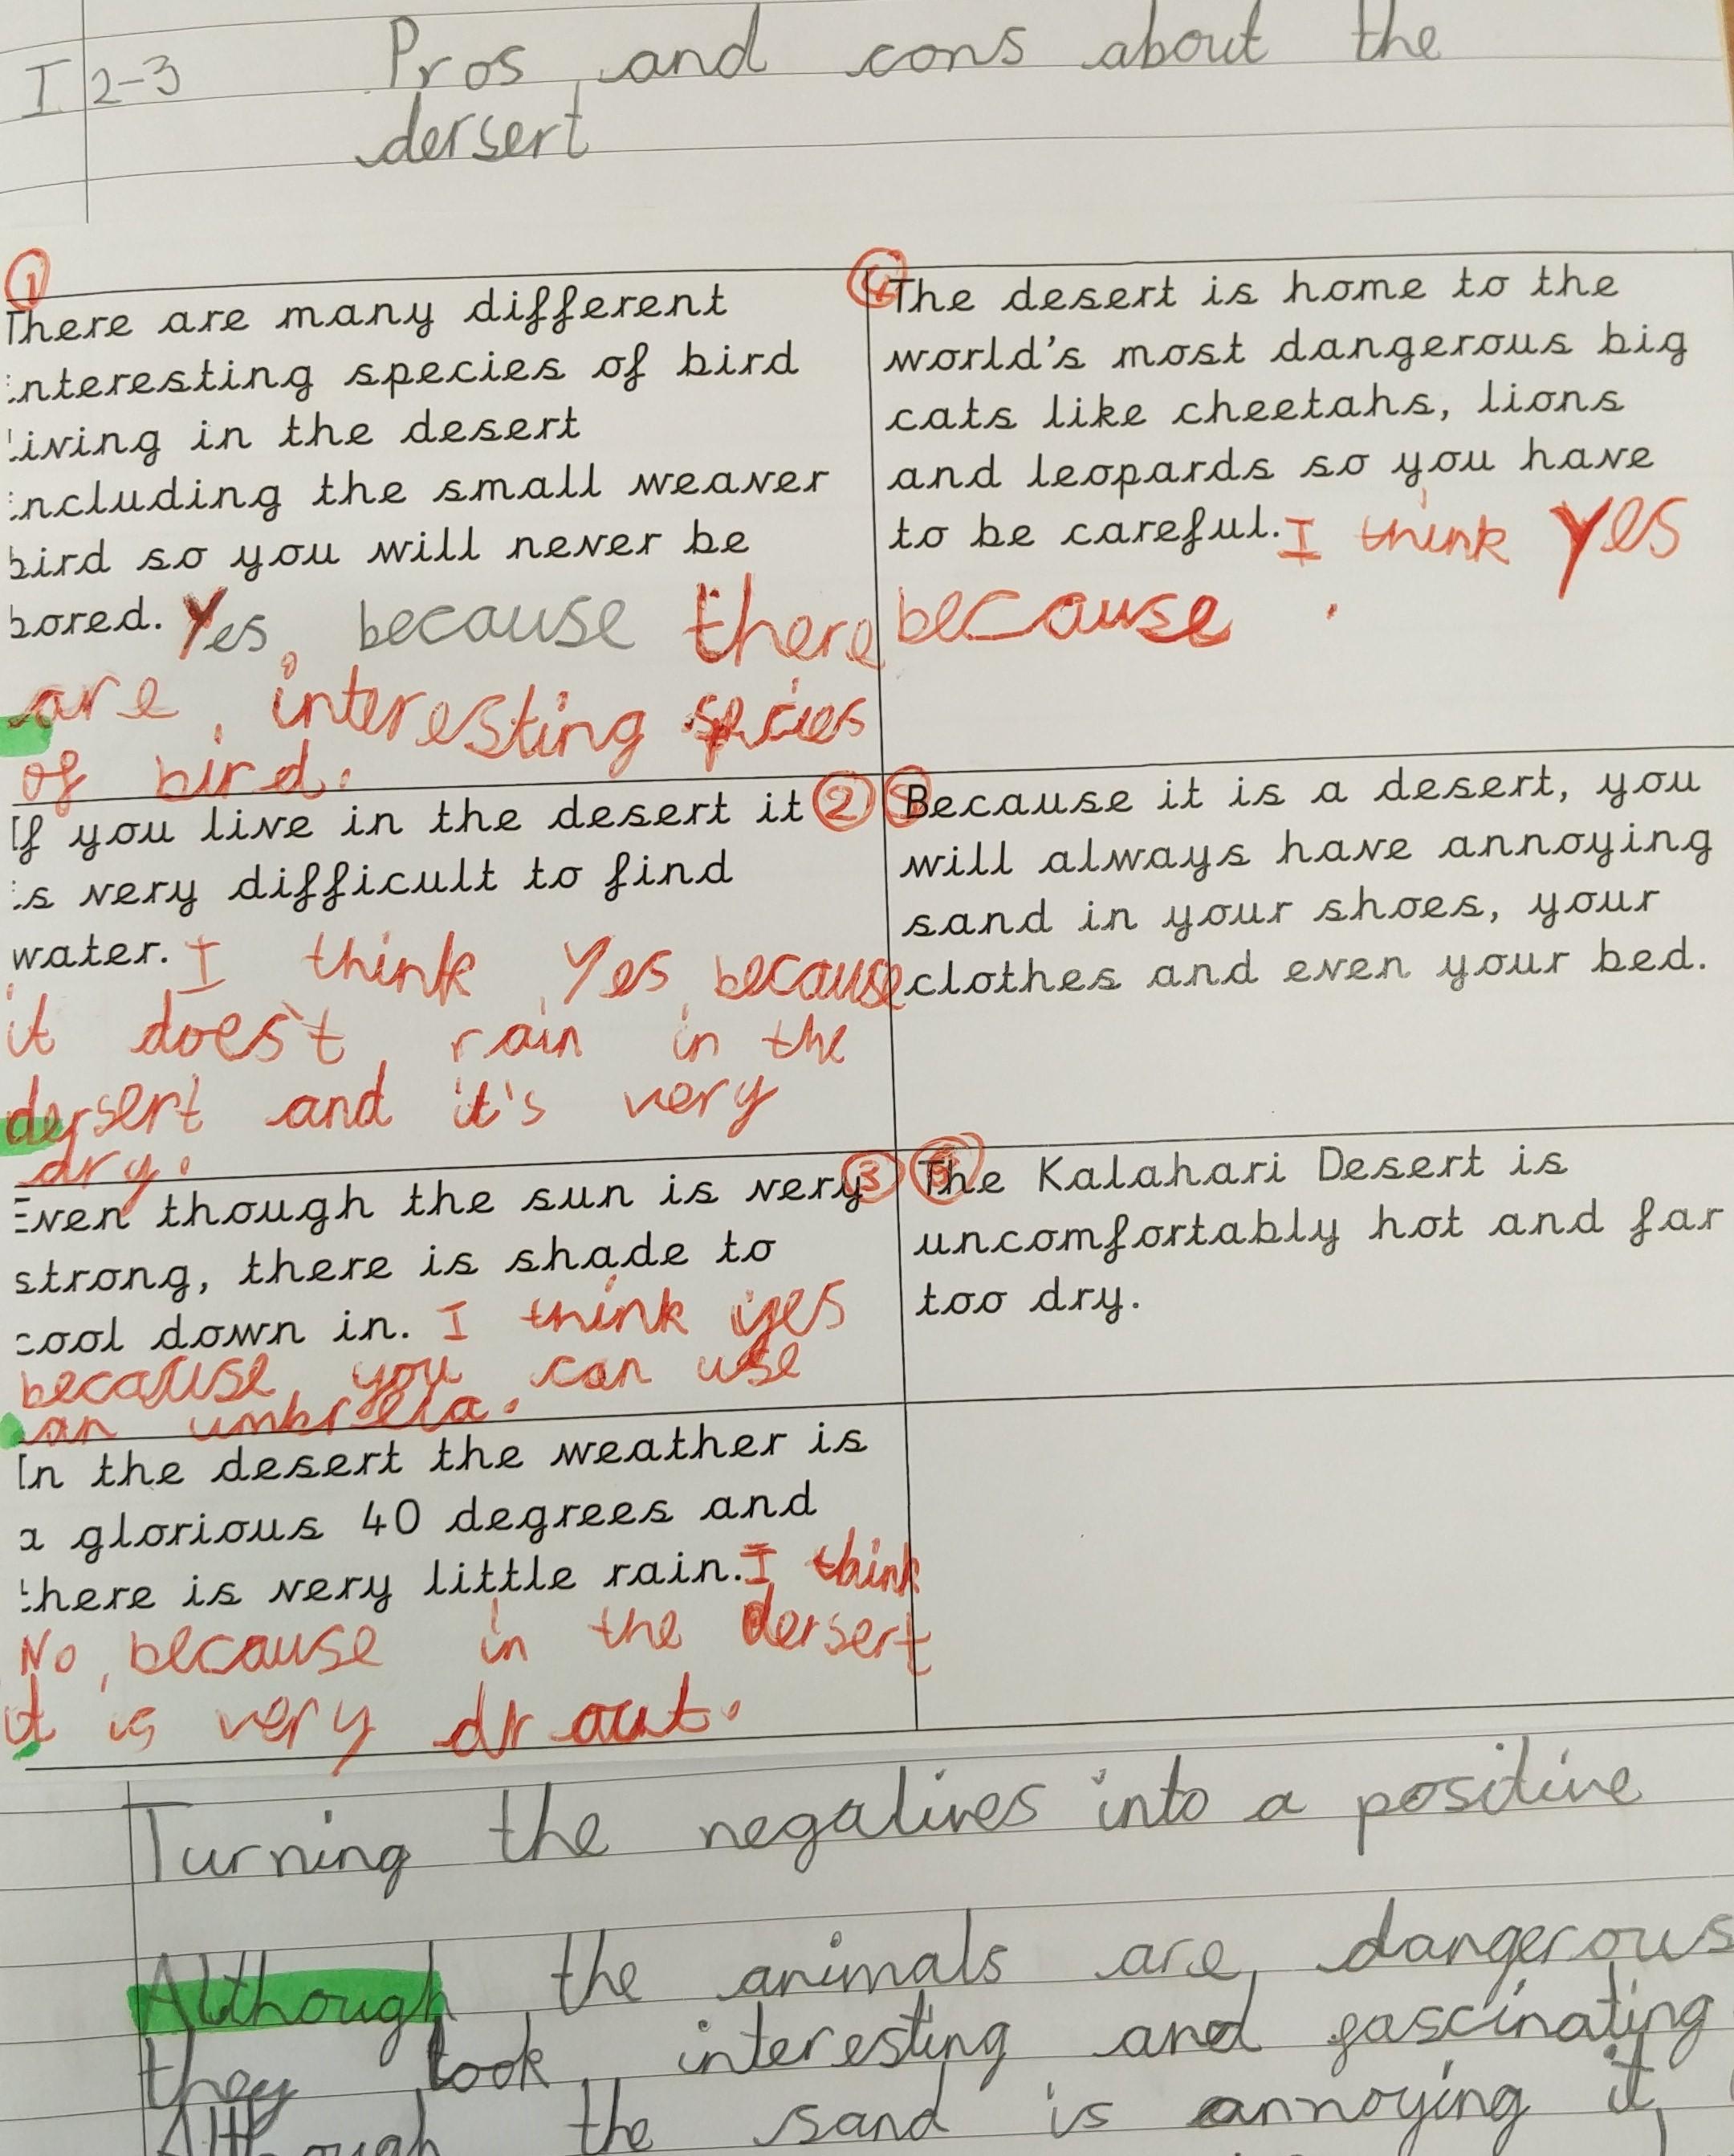 I 2-3 Pros and cons about the
dersert
1
There are many different
interesting species of bird
living in the desert
including the small weaver
bird so you will never be
bored. Yes, because there
are interesting spcies
of bird.
2
If you live in the desert it
is very difficult to find
water. I think Yes because
it does't rain in the
dersert and it's very
dry.
3
Even though the sun is very
strong, there is shade to
cool down in. I think yes
because you can use
an umbrella.
In the desert the weather is
a glorious 40 degrees and
there is very little rain. I think
No, because in the dersert
it is very dr out.
4
The desert is home to the
world's most dangerous big
cats like cheetahs, lions
and leopards so you have
to be careful. I think Yes
because
5
Because it is a desert, you
will always have annoying
sand in your shoes, your
clothes and even your bed.
The Kalahari Desert is
uncomfortably hot and far
too dry.
Turning the negatives into a positive
Although the animals are dangerous
they look interesting and fascinating
Although the sand is annoying it